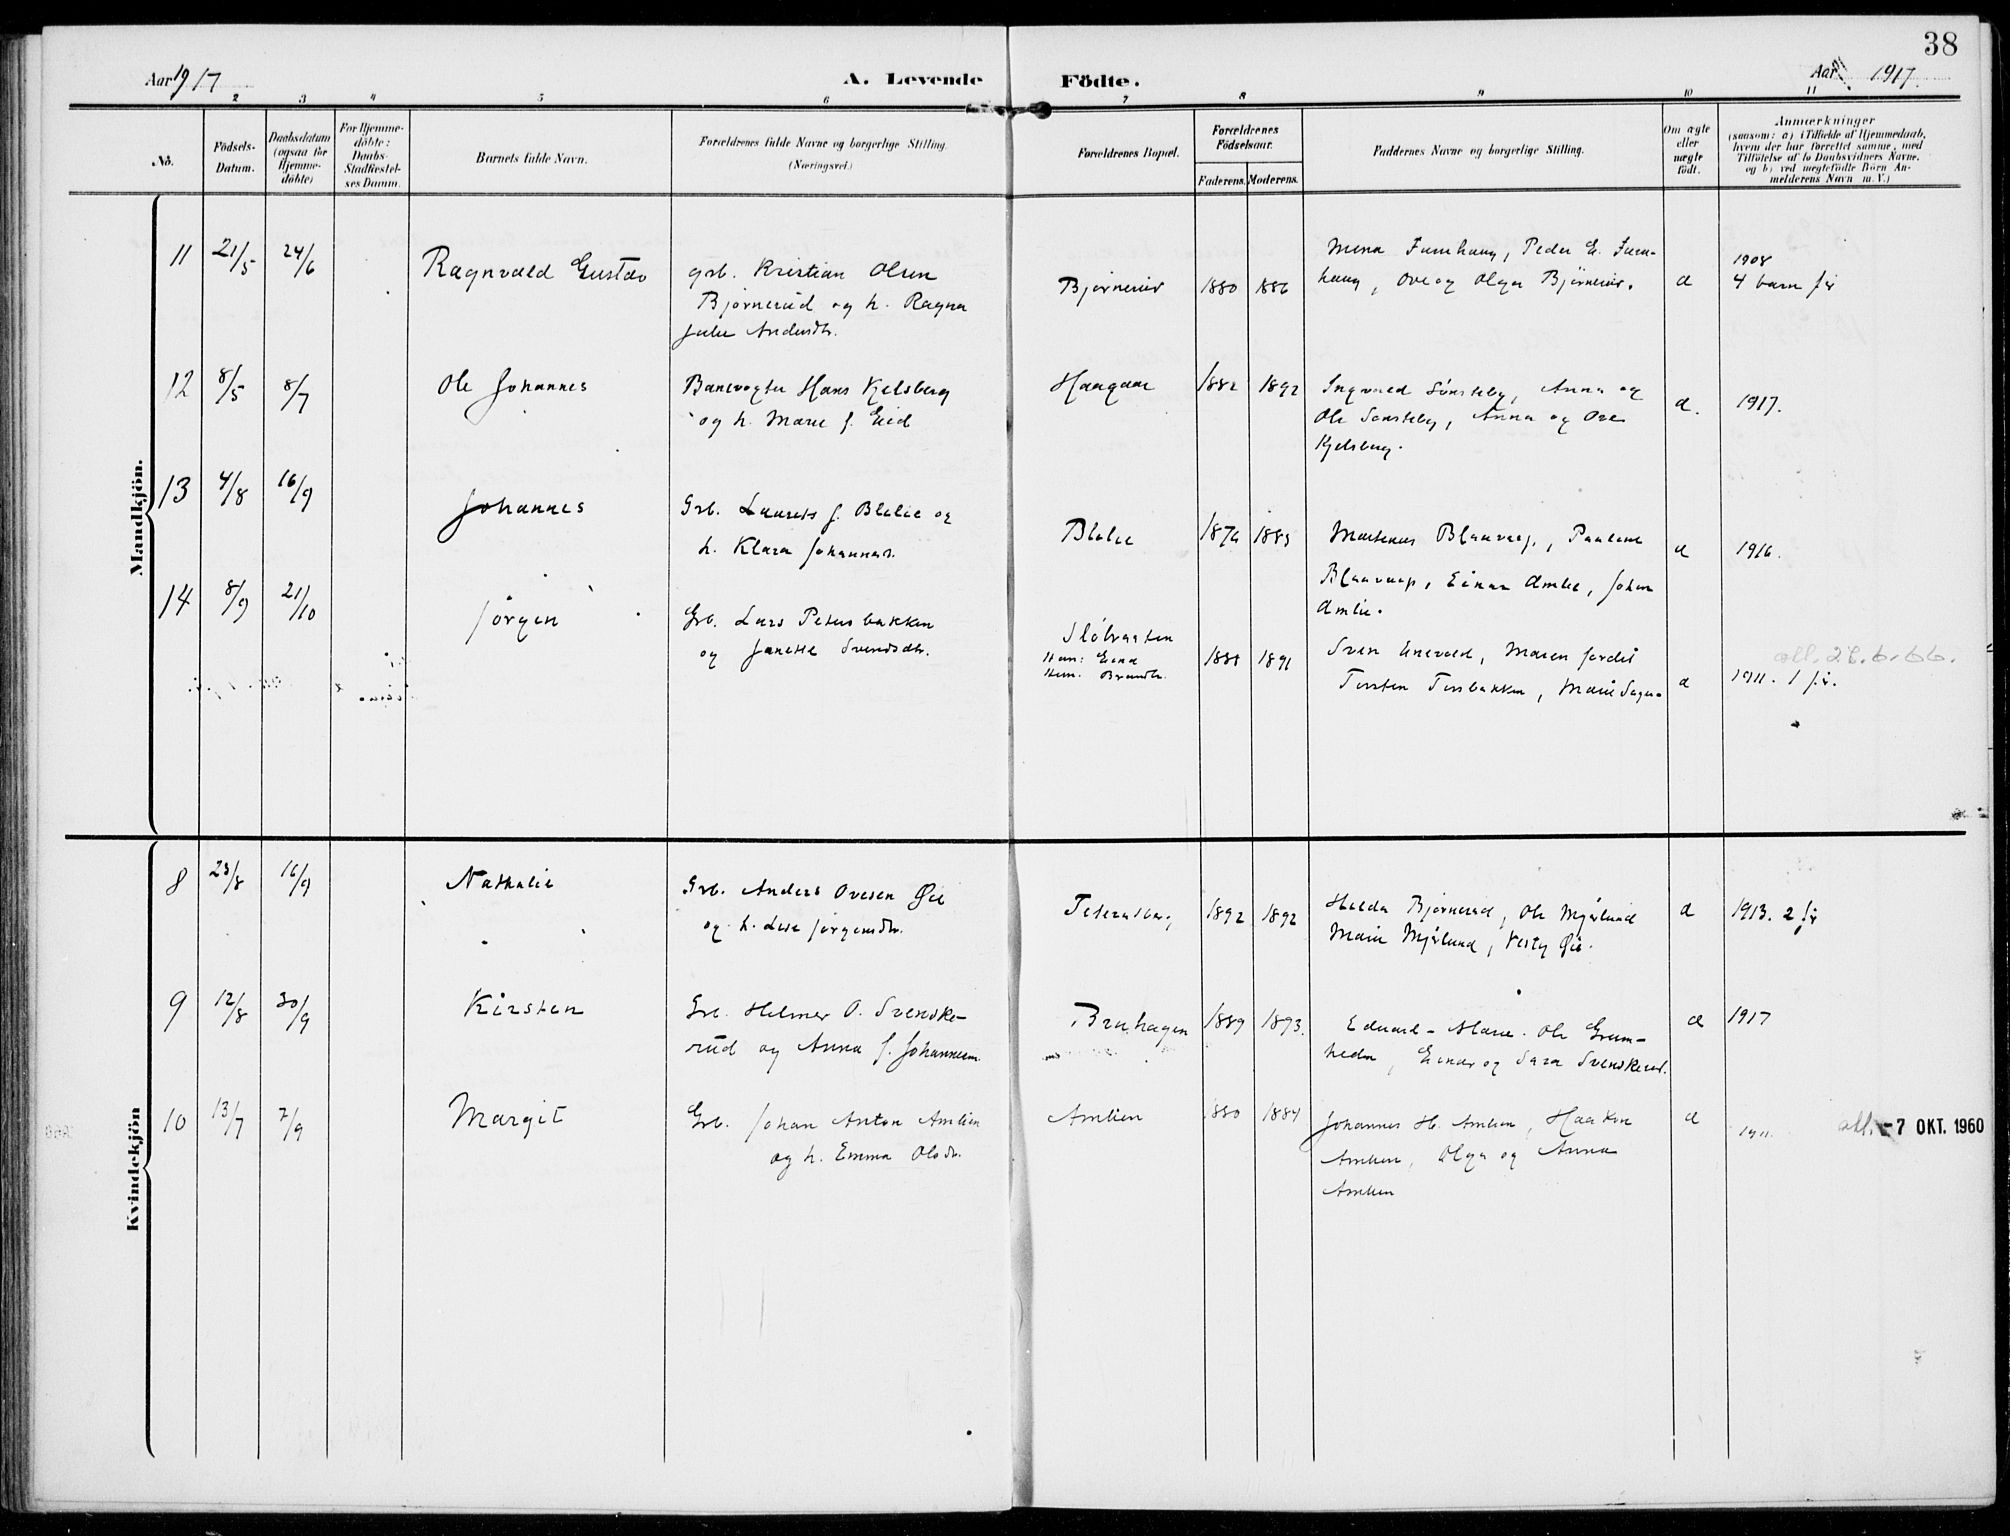 38
Aar 1917
A. Levende
Födte.
Aar 1917.
2 3 4 5 6 7 8 9 10 11
No.
Födsels-
Datum.
Daabsdatum
(ogsaa for
Hjemme-
döbte)
For Hjemme-
döbte:
Daabs-
Stadfæstel-
ses Datum.
Barnets fulde Navn.
Forældrenes fulde Navne og borgerlige Stilling.
(Næringsvei.)
Forældrenes Bopæl.
Forældrenes
Födselsaar.
Faderens. Moderens.
Faddernes Navne og borgerlige Stilling.
Om ægte
eller
uægte
födt.
Anmærkninger
(saasom: a) i Tilfælde af Hjemmedaab,
hvem der har forrettet samme, med
Tilföielse af to Daabsvidners Navne.
og b) ved uægtefödte Börn An-
melderens Navn m. V.)
Mandkjön.
11 21/5 24/6 Ragnvald Gustav
grb. Kristian Olsen
Bjørnerud og h. Ragna
Julie Andersdtr.
Bjørnerud 1880 1886
Mina Furuhaug, Peder E. Furu-
haug, Ove og Olga Bjørnerud.
a
1908
4 barn før
12 8/5 8/7 Ole Johannes
Banevogter Hans Kjelsberg
og h. Marie f. Eid
Haagaar 1882 1892
Ingvald Sønsteby, Anna og
Ole Sønsteby, Anna og Ove
Kjelsberg.
a. 1917.
13 4/8 16/9 Johannes
Grb. Laurits f. Blilie og
h. Klara Johannesd.
Blilie 1876 1885
Martinus Blaavarp, Pauline
Blaavarp, Einar Amlie, Johan
Amlie.
a 1916.
14 8/9 21/10 Jørgen
Grb. Lars Petersbakken
og Janette Svendsdtr.
1888 1891
Sven Enevold, Maren Jordet
Torsten Torsbakken, Marie
a
1911. 1 før.
Kvindekjön
8 23/8 16/9 Nathalie
Grb. Anders Ovesen Øie
og h. Lise Jørgensdtr.
1892 1892
Hilda Bjørnerud, Ole Mjørlund
Marie Mjørlund, Øie.
a 1913. 2 før
9 12/8 30/9 Kirsten
Grb. Helmer O. Svenske-
rud og Anna f. Johannesen.
Brahagen 1889 1893.
Edvard - Marie. Ole Grøn-
heden, Einar og Sara Svenskerud.
a 1917
10 13/7 7/9 Margit
Grb. Johan Anton Amlien
og h. Emma Olsdtr.
Amlien 1880 1884
Johannes H. Amlien, Haakon
Amlien, Olga og Anna
Amlien
a 1911.
att. -7 OKT. 1960